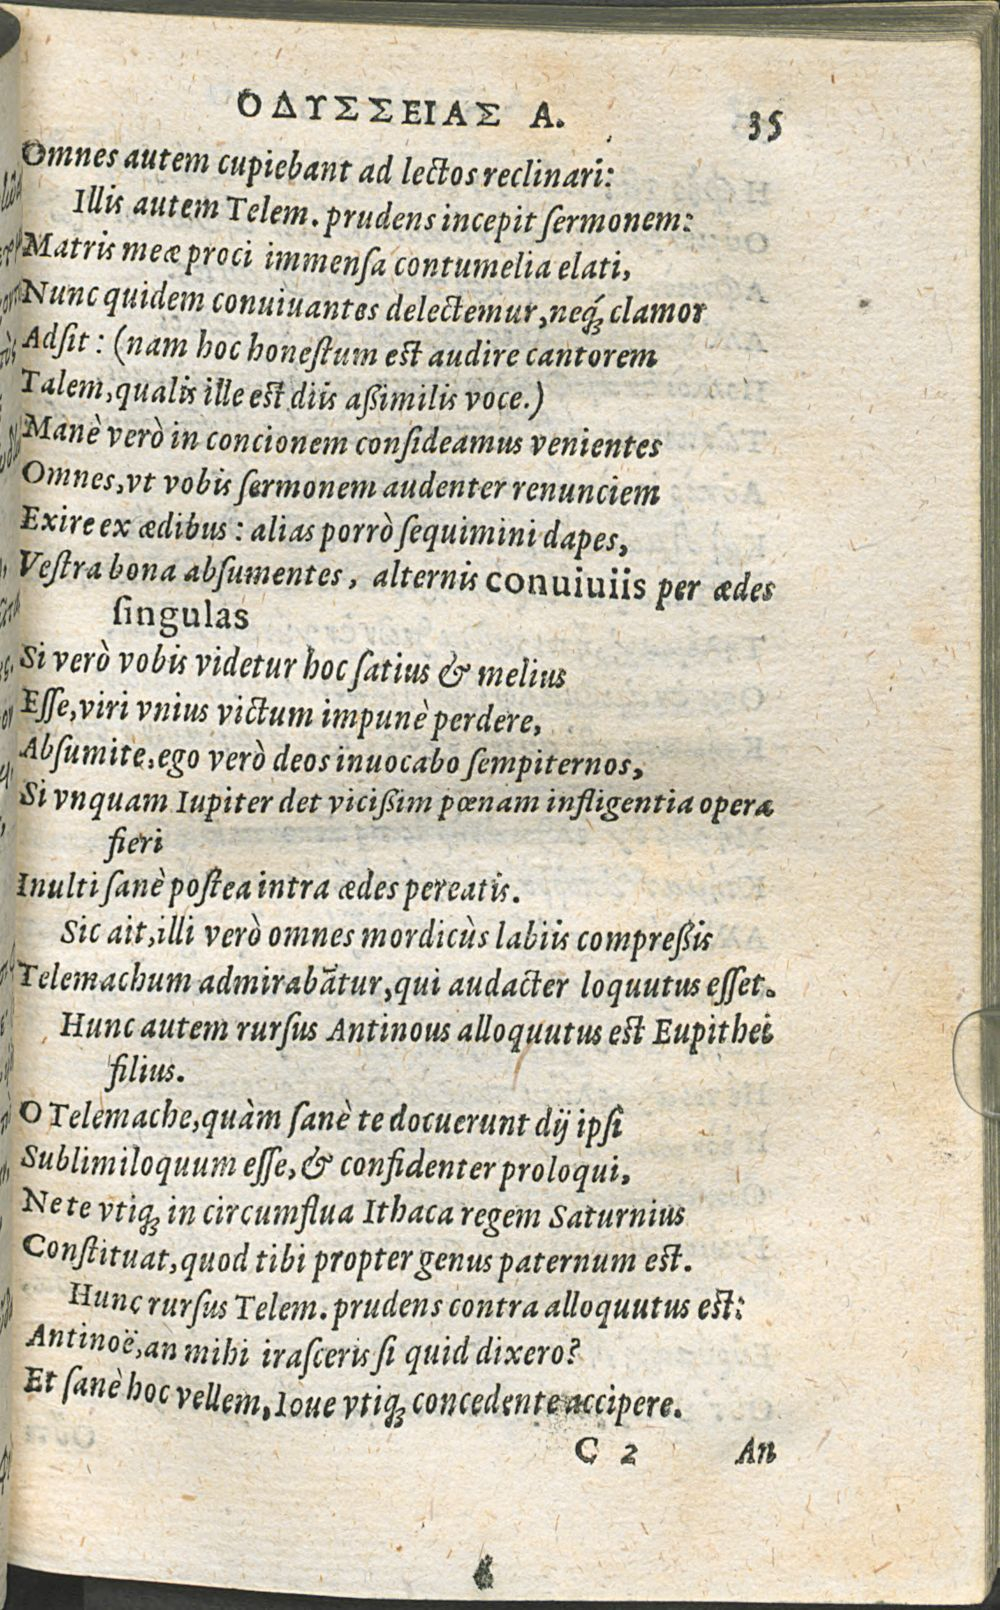 ΟΔΥΣΣΕΙΑΣ Α. 35
Omnes autem cupiebant ad lectos reclinari:
Illis autem Telem. prudens incepit ſermonem:
Matris meæ proci immenſa contumelia elati,
Nunc quidem conuiuantes delectemur, neq́; clamor
Adſit: (nam hoc honeſtum eſt audire cantorem
Talem, qualis ille eſt diis aßimilis voce.)
Manè verò in concionem conſideamus venientes
Omnes, vt vobis ſermonem audenter renunciem
Exire ex ædibus: alias porrò ſequimini dapes,
Veſtra bona abſumentes, alternis conuiuiis per ædes
ſingulas
Si verò vobis videtur hoc ſatius & melius
Eſſe, viri vnius victum impunè perdere,
Abſumite, ego verò deos inuocabo ſempiternos,
Si vnquam Iupiter det vicißim pœnam infligentia opera
fieri
Inulti ſanè poſtea intra ædes pereatis.
Sic ait, illi verò omnes mordicùs labiis compreßis
Telemachum admirabātur, qui audacter loquutus eſſet.
Hunc autem rurſus Antinous alloquutus eſt Eupithei
filius.
O Telemache, quàm ſanè te docuerunt dij ipſi
Sublimiloquum eſſe, & confidenter proloqui,
Ne te vtiq; in circumflua Ithaca regem Saturnius
Conſtituat, quod tibi propter genus paternum eſt.
Hunc rurſus Telem. prudens contra alloquutus eſt:
Antinoë, an mihi iraſceris ſi quid dixero?
Et ſanè hoc vellem, Ioue vtiq; concedente accipere.
C 2 An